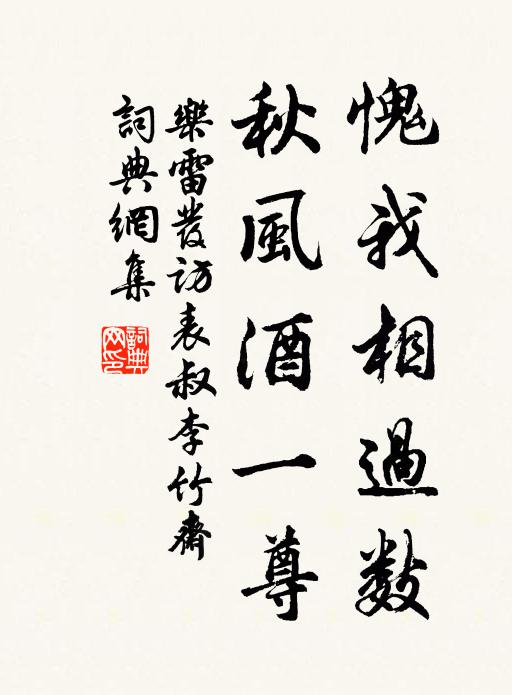 愧我相過數
秋風酒一尊
樂雷發訪表叔李竹齋
詞典網集
詞典網印